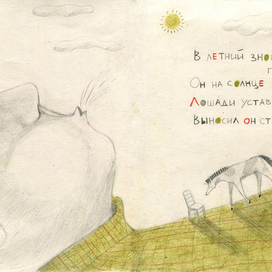 В ЛЕТНИЙ ЗНО
П
ОН НА СОЛНЦЕ
ЛОШАДИ УСТАВ
ВЫНОСИЛ ОН СТ